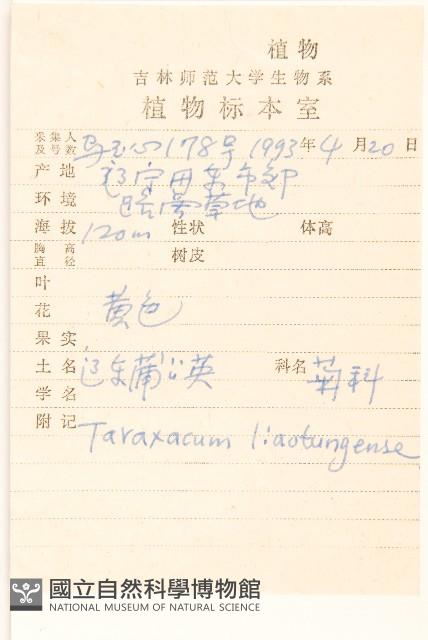 植物
吉林师范大学生物系
植物标本室
采集人及号数 马玉心 178号 1993年4月20日
产地 辽宁丹东市郊
环境 路旁草地
海拔 120m 性状 体高
胸高直径 树皮
叶
花 黄色
果实
土名 辽东蒲公英 科名 菊科
学名
附记 Taraxacum liaotungense
國立自然科學博物館
NATIONAL MUSEUM OF NATURAL SCIENCE